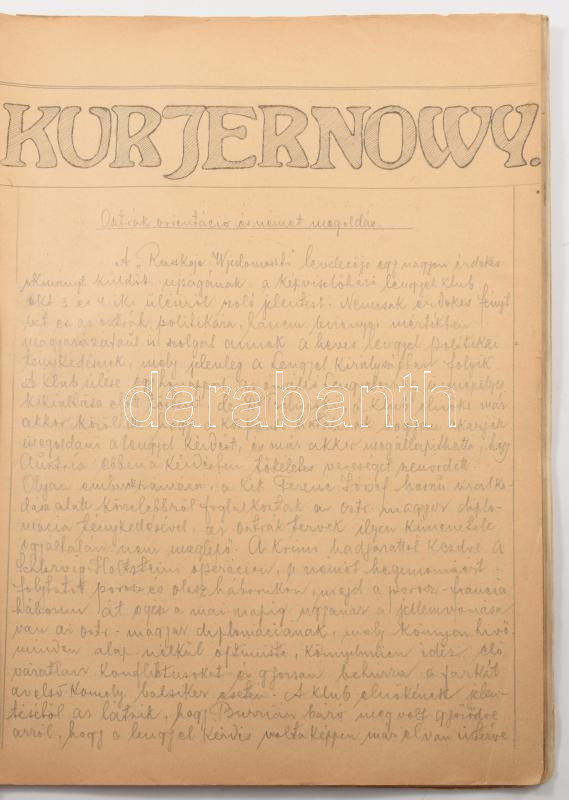 KURJERNOWY.
Osztrák orientáció és német megoldás.
A „Ruskoje Wjedomosti" levelezője egy nagyon érdekes
okmányt küldött ujságának: a képviselőházi lengyel klub
okt. 3. és 4.-iki üléséről szóló jelentést. Nemcsak érdekes fényt
vet ez az osztrák politikára, hanem bizonyos mértékben
magyarázatául is szolgál annak a heves lengyel politikai
ténykedésnek, mely jelenleg a Lengyel Királyságban folyik
A klub ülése
kikiáltása előtt
akkor közölte
megoldani a lengyel kérdést, és már akkor megállapíthatta, hogy
Ausztria ebben a kérdésben tökéletes vereséget szenvedett.
Olyan emberek számára, a kik Ferenc József hosszú uralko-
dása alatt közelebbről foglalkoztak az osztr. magyar diplo-
mácia ténykedésével, az osztrák tervek ilyen kimenetele
egyáltalán nem meglepő. A Krími hadjárattól kezdve. A
Schleswig-Holsteini operáción, a német hegemoniáért
folytatott porosz és olasz háborukon, majd a porosz-francia
háborun át egész a mai napig ugyanaz a jellemvonása
van az osztr.-magyar diplomáciának, mely könnyen hívő
minden alap nélkül optimista, könnyelmüen idéz elő
váratlan konfliktusokat és gyorsan behuzza a farkát
az első komoly balsiker esetén. A klub elnökének jelen-
téséből az látszik, hogy Burrián báró meg volt győződve
arról, hogy a lengyel kérdés voltaképpen már el van intézve
darabanth